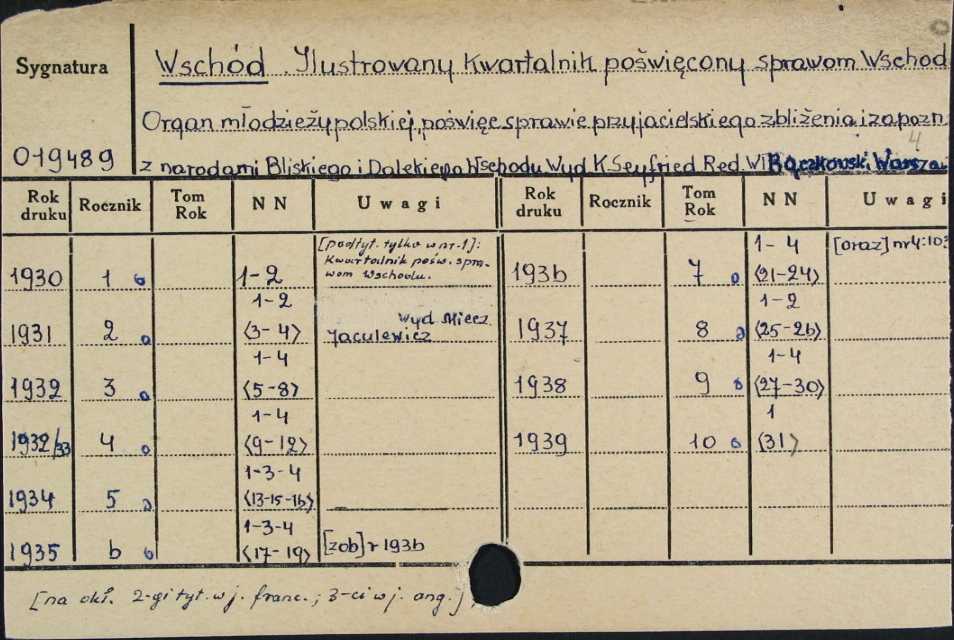 Sygnatura
Wschód. Ilustrowany Kwartalnik poświęcony sprawom Wschod
Organ młodzieży polskiej, poświęc. sprawie przyjacielskiego zbliżenia i zapozn.
4
019489
z narodami Bliskiego i Dalekiego Wschodu Wyd K. Seyfried Red. Wł Bączkowski. Warsza
Rok druku Rocznik Tom Rok NN Uwagi Rok druku Rocznik Tom Rok NN Uwagi
1930 1 1-2 [podtyt. tylko w nr-1]: Kwartalnik pośw. sprawom Wschodu. 1936 7 1-4 (21-24) [oraz] nr 4:103
1931 2 1-2 (3-4) wyd Miecz Jaculewicz 1937 8 1-2 (25-26)
1932 3 1-4 (5-8) 1938 9 1-4 (27-30)
1932/33 4 1-4 (9-12) 1939 10 1 (31)
1934 5 1-3-4 (13-15-16)
1935 6 1-3-4 (17-19) [zob] r 1936
[na okł. 2-gi tyt. w j. franc.; 3-ci w j. ang.]